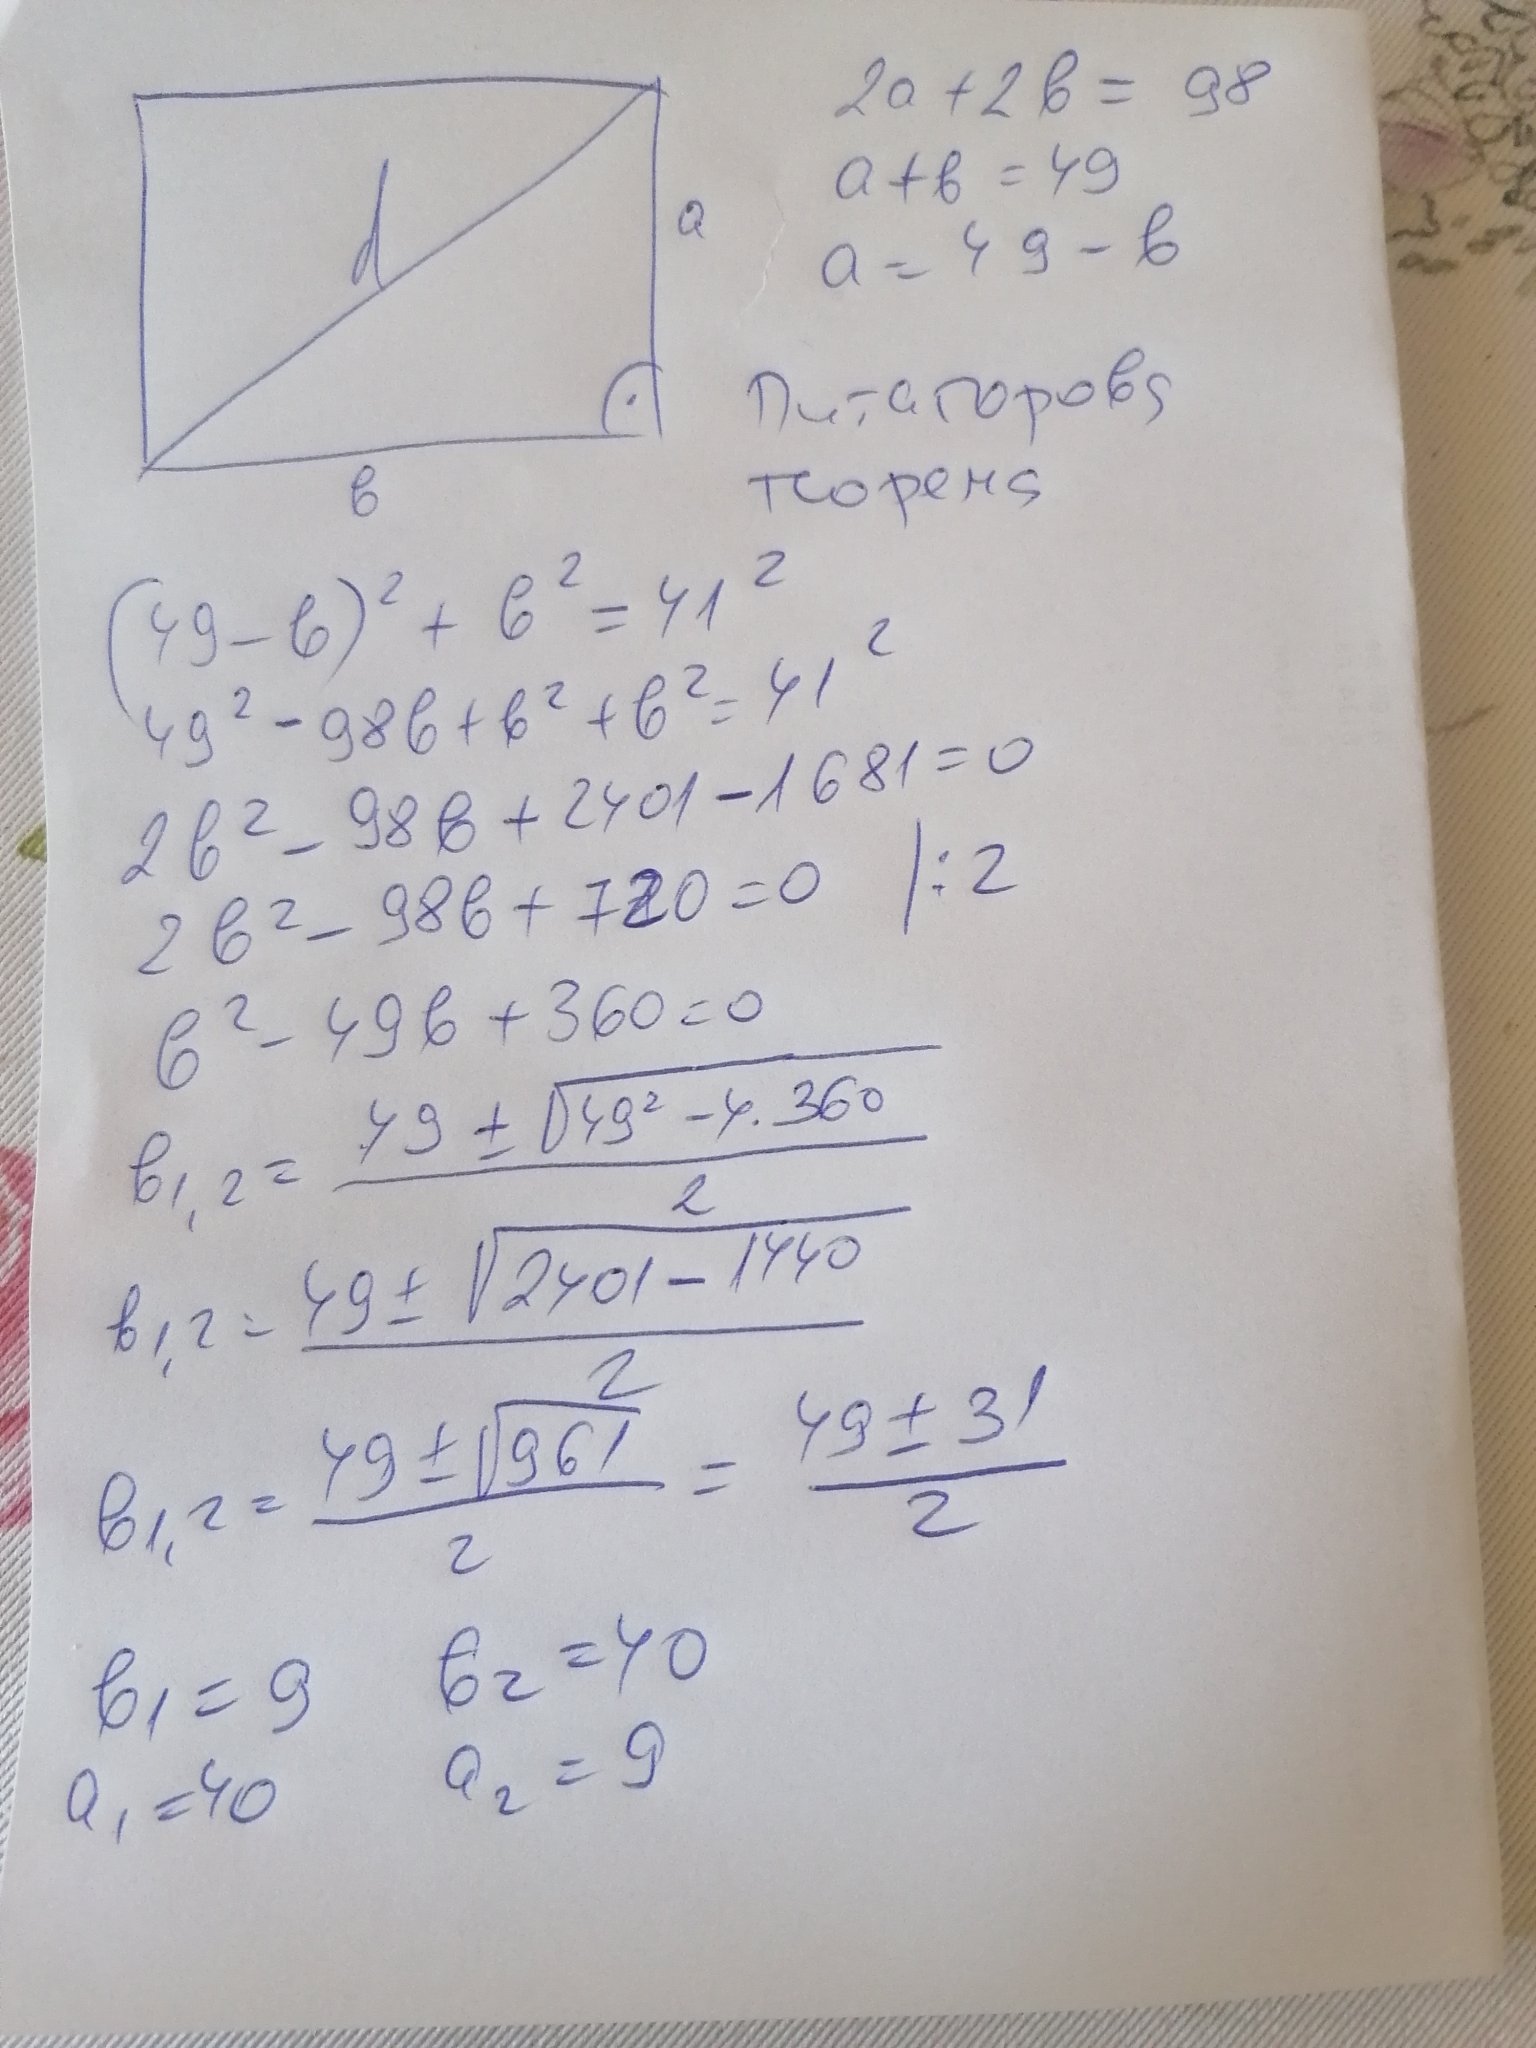 2a + 2b = 98
a + b = 49
a = 49 - b
d
a
b
Питагорова
теорема
(49 - b)² + b² = 41²
49² - 98b + b² + b² = 41²
2b² - 98b + 2401 - 1681 = 0
2b² - 98b + 720 = 0 |:2
b² - 49b + 360 = 0
b1,2 = (49 ± √(49² - 4.360)) / 2
b1,2 = (49 ± √(2401 - 1440)) / 2
b1,2 = (49 ± √961) / 2 = (49 ± 31) / 2
b1 = 9 b2 = 40
a1 = 40 a2 = 9